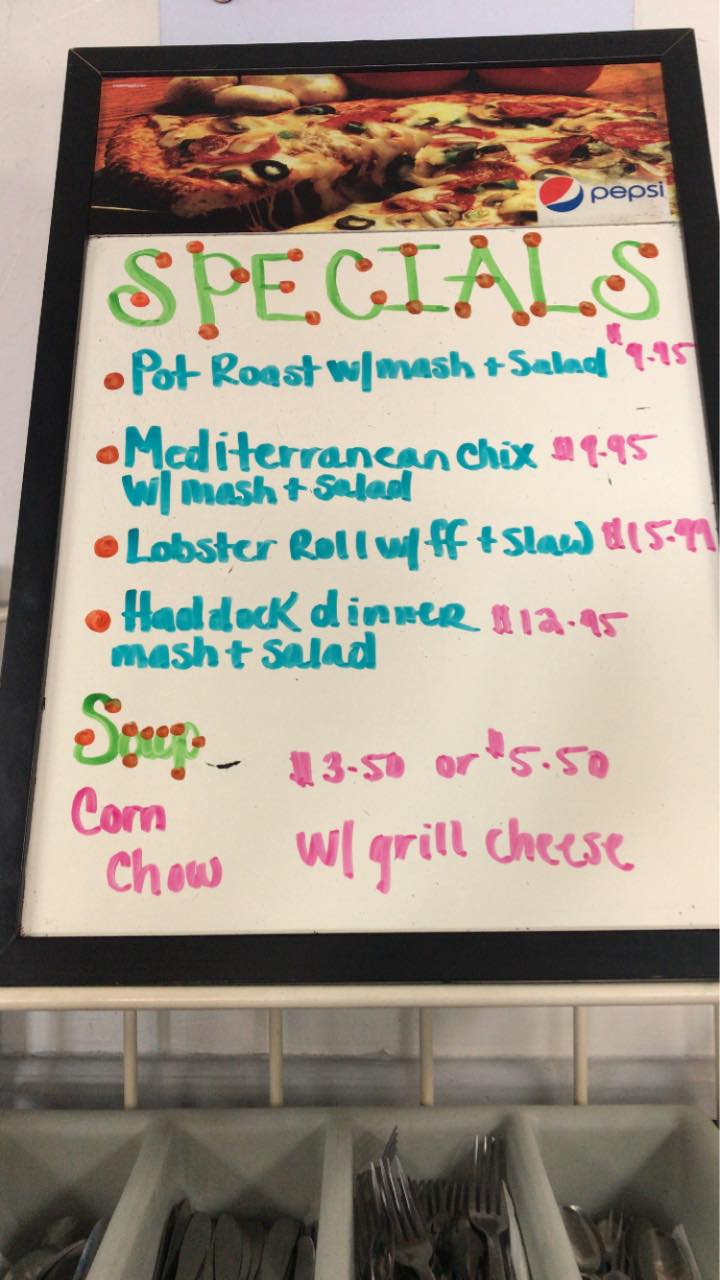 pepsi
SPECIALS
Pot Roast w/mash + Salad $9.95
Mediterranean chix $9.95
w/ mash + salad
Lobster Roll w/ ff + Slaw $15.99
Haddock dinner $12.95
mash + salad
Soup - $3.50 or $5.50
Corn w/ grill cheese
Chow